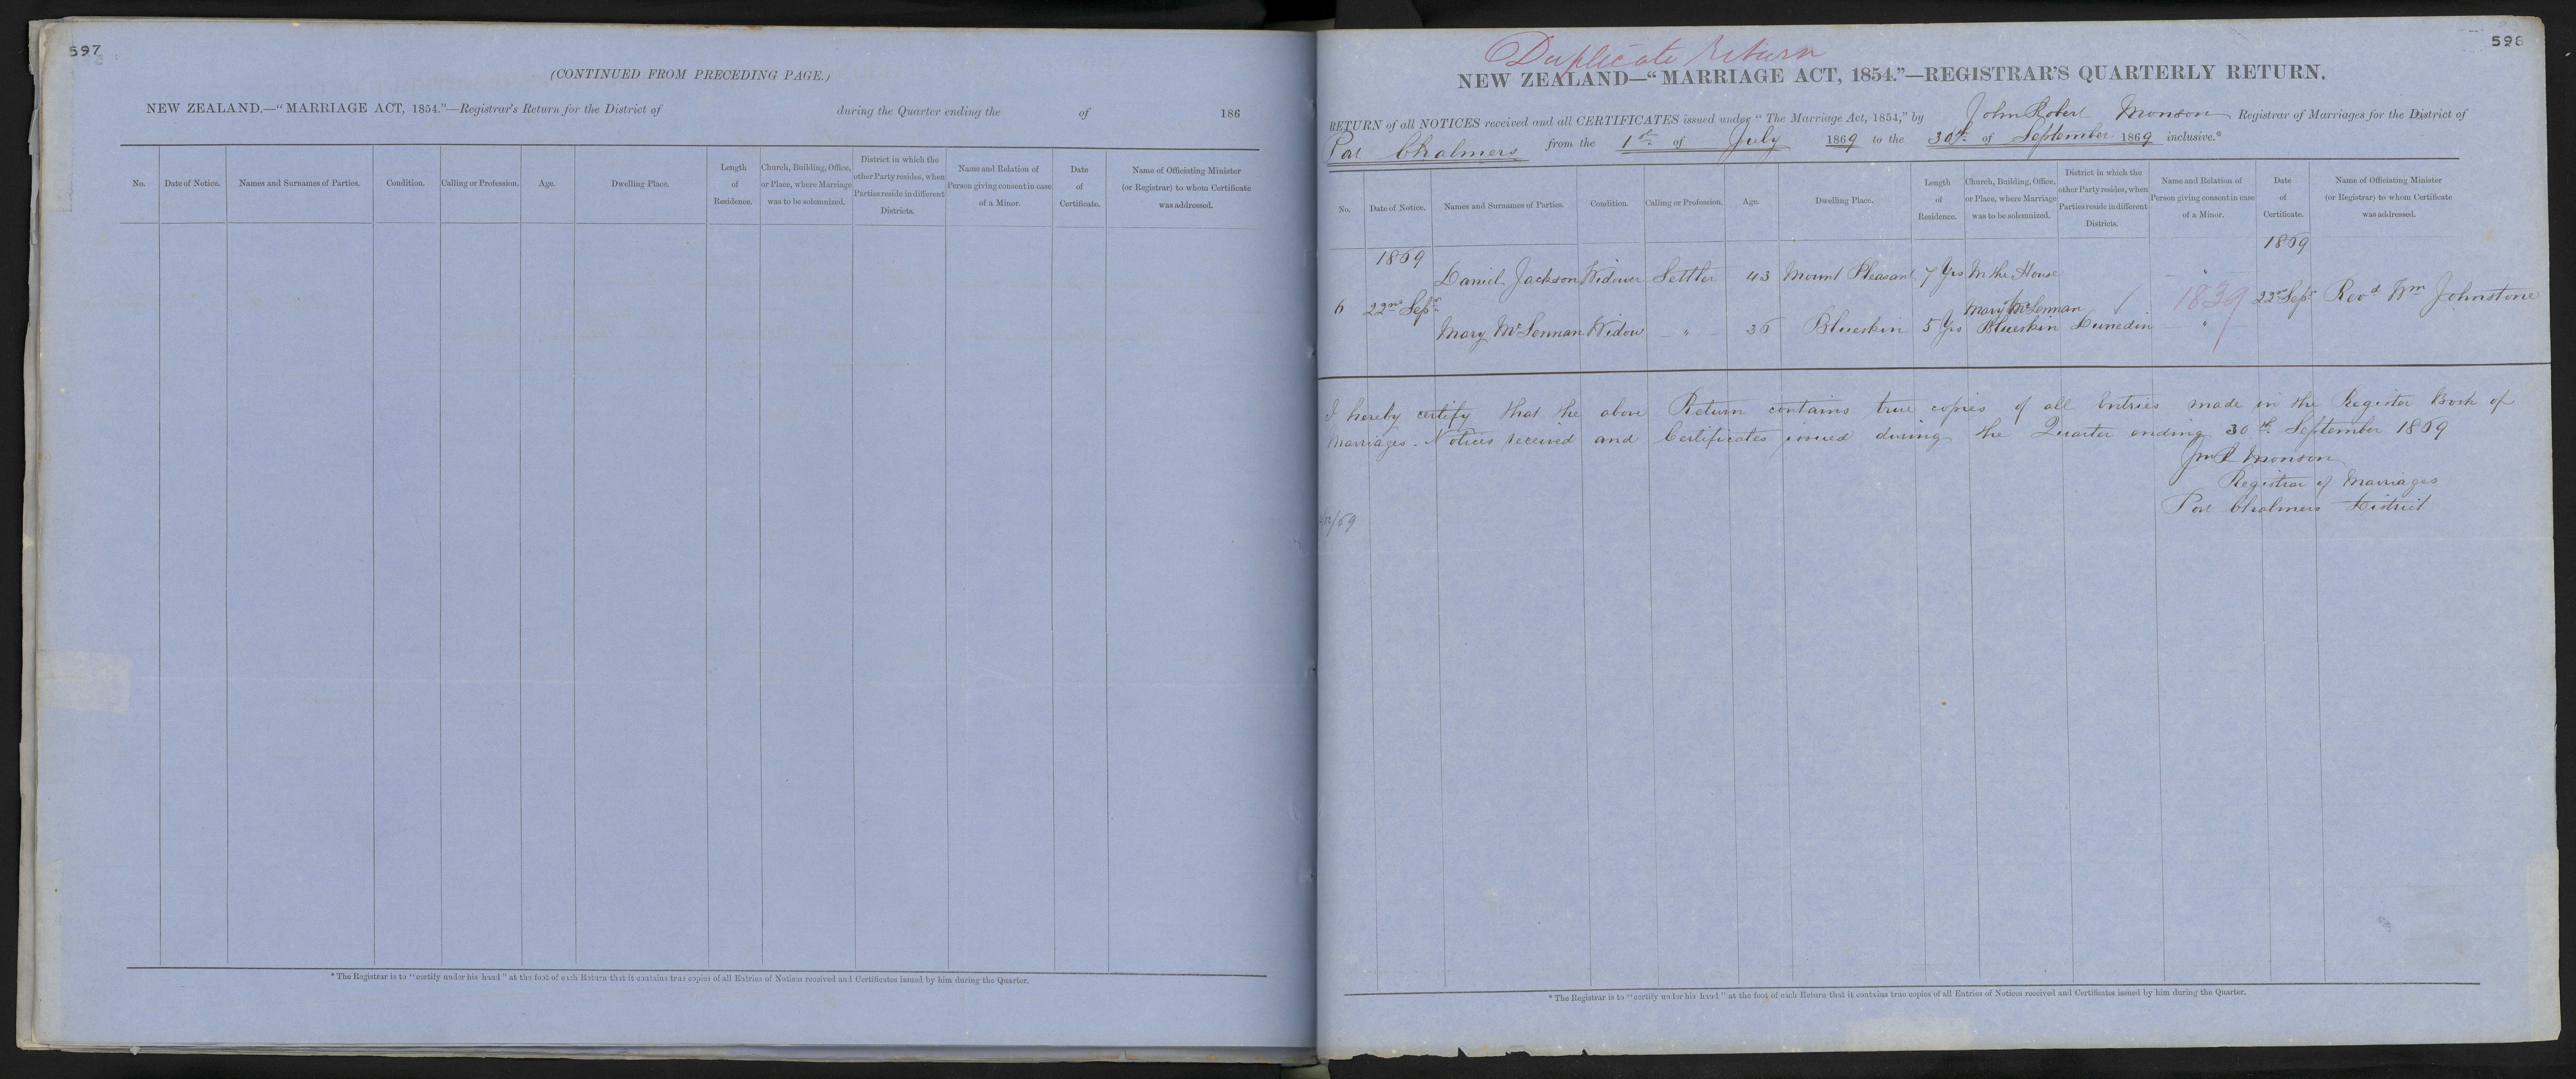 597
(CONTINUED FROM PRECEDING PAGE.)
NEW ZEALAND.—“MARRIAGE ACT, 1854.”—Registrar's Return for the District of during the Quarter ending the of 186
No. Date of Notice. Names and Surnames of Parties. Condition. Calling or Profession. Age. Dwelling Place. Length of Residence. Church, Building, Office, or Place, where Marriage was to be solemnized. District in which the other Party resides, when Parties reside in different Districts. Name and Relation of Person giving consent in case of a Minor. Date of Certificate. Name of Officiating Minister (or Registrar) to whom Certificate was addressed.
* The Registrar is to “certify under his hand” at the foot of each Return that it contains true copies of all Entries of Notices received and Certificates issued by him during the Quarter.
598
Duplicate Return
NEW ZEALAND—“MARRIAGE ACT, 1854.”—REGISTRAR'S QUARTERLY RETURN.
RETURN of all NOTICES received and all CERTIFICATES issued under “The Marriage Act, 1854,” by John Robert Monson Registrar of Marriages for the District of
Port Chalmers from the 1st of July 1869 to the 30th of September 1869 inclusive.*
No. Date of Notice. Names and Surnames of Parties. Condition. Calling or Profession. Age. Dwelling Place. Length of Residence. Church, Building, Office, or Place, where Marriage was to be solemnized. District in which the other Party resides, when Parties reside in different Districts. Name and Relation of Person giving consent in case of a Minor. Date of Certificate. Name of Officiating Minister (or Registrar) to whom Certificate was addressed.
1869 1869
Daniel Jackson Widower Settler 43 Mount Pleasant 7 Yrs In the House "
6 22nd Sepr. of Mary McLennan 1839 22nd Sepr Revd Wm Johnstone
Mary McLennan Widow — " — 36 Blueskin 5 Yrs Blueskin Dunedin — " —
I hereby certify that the above Return contains true copies of all Entries made in the Register Book of
Marriages. Notices received and Certificates issued during the Quarter ending 30th September 1869
Jno R Monson
Registrar of Marriages
Port Chalmers District